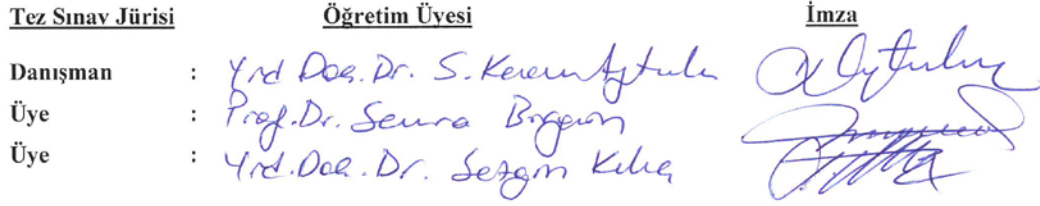 Tez Sınav Jürisi Öğretim Üyesi İmza
Danışman : Yrd Doç. Dr. S. Kerem Aytulun
Üye : Prof. Dr. Semra
Üye : Yrd. Doç. Dr. Sezgin Kılıç